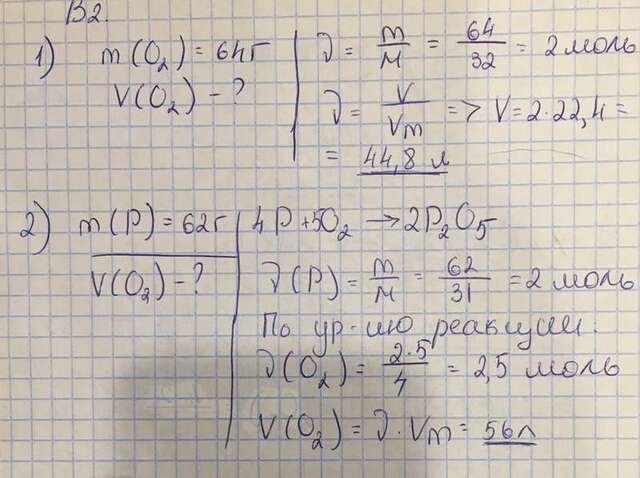 В2.
1) m(O₂) = 64г
V(O₂) - ?
ν = m/M = 64/32 = 2 моль
ν = V/Vm => V = 2·22,4 =
= 44,8 л
2) m(P) = 62г
V(O₂) - ?
4P + 5O₂ → 2P₂O₅
ν(P) = m/M = 62/31 = 2 моль
По ур-ию реакции:
ν(O₂) = 2·5/4 = 2,5 моль
V(O₂) = ν·Vm = 56л